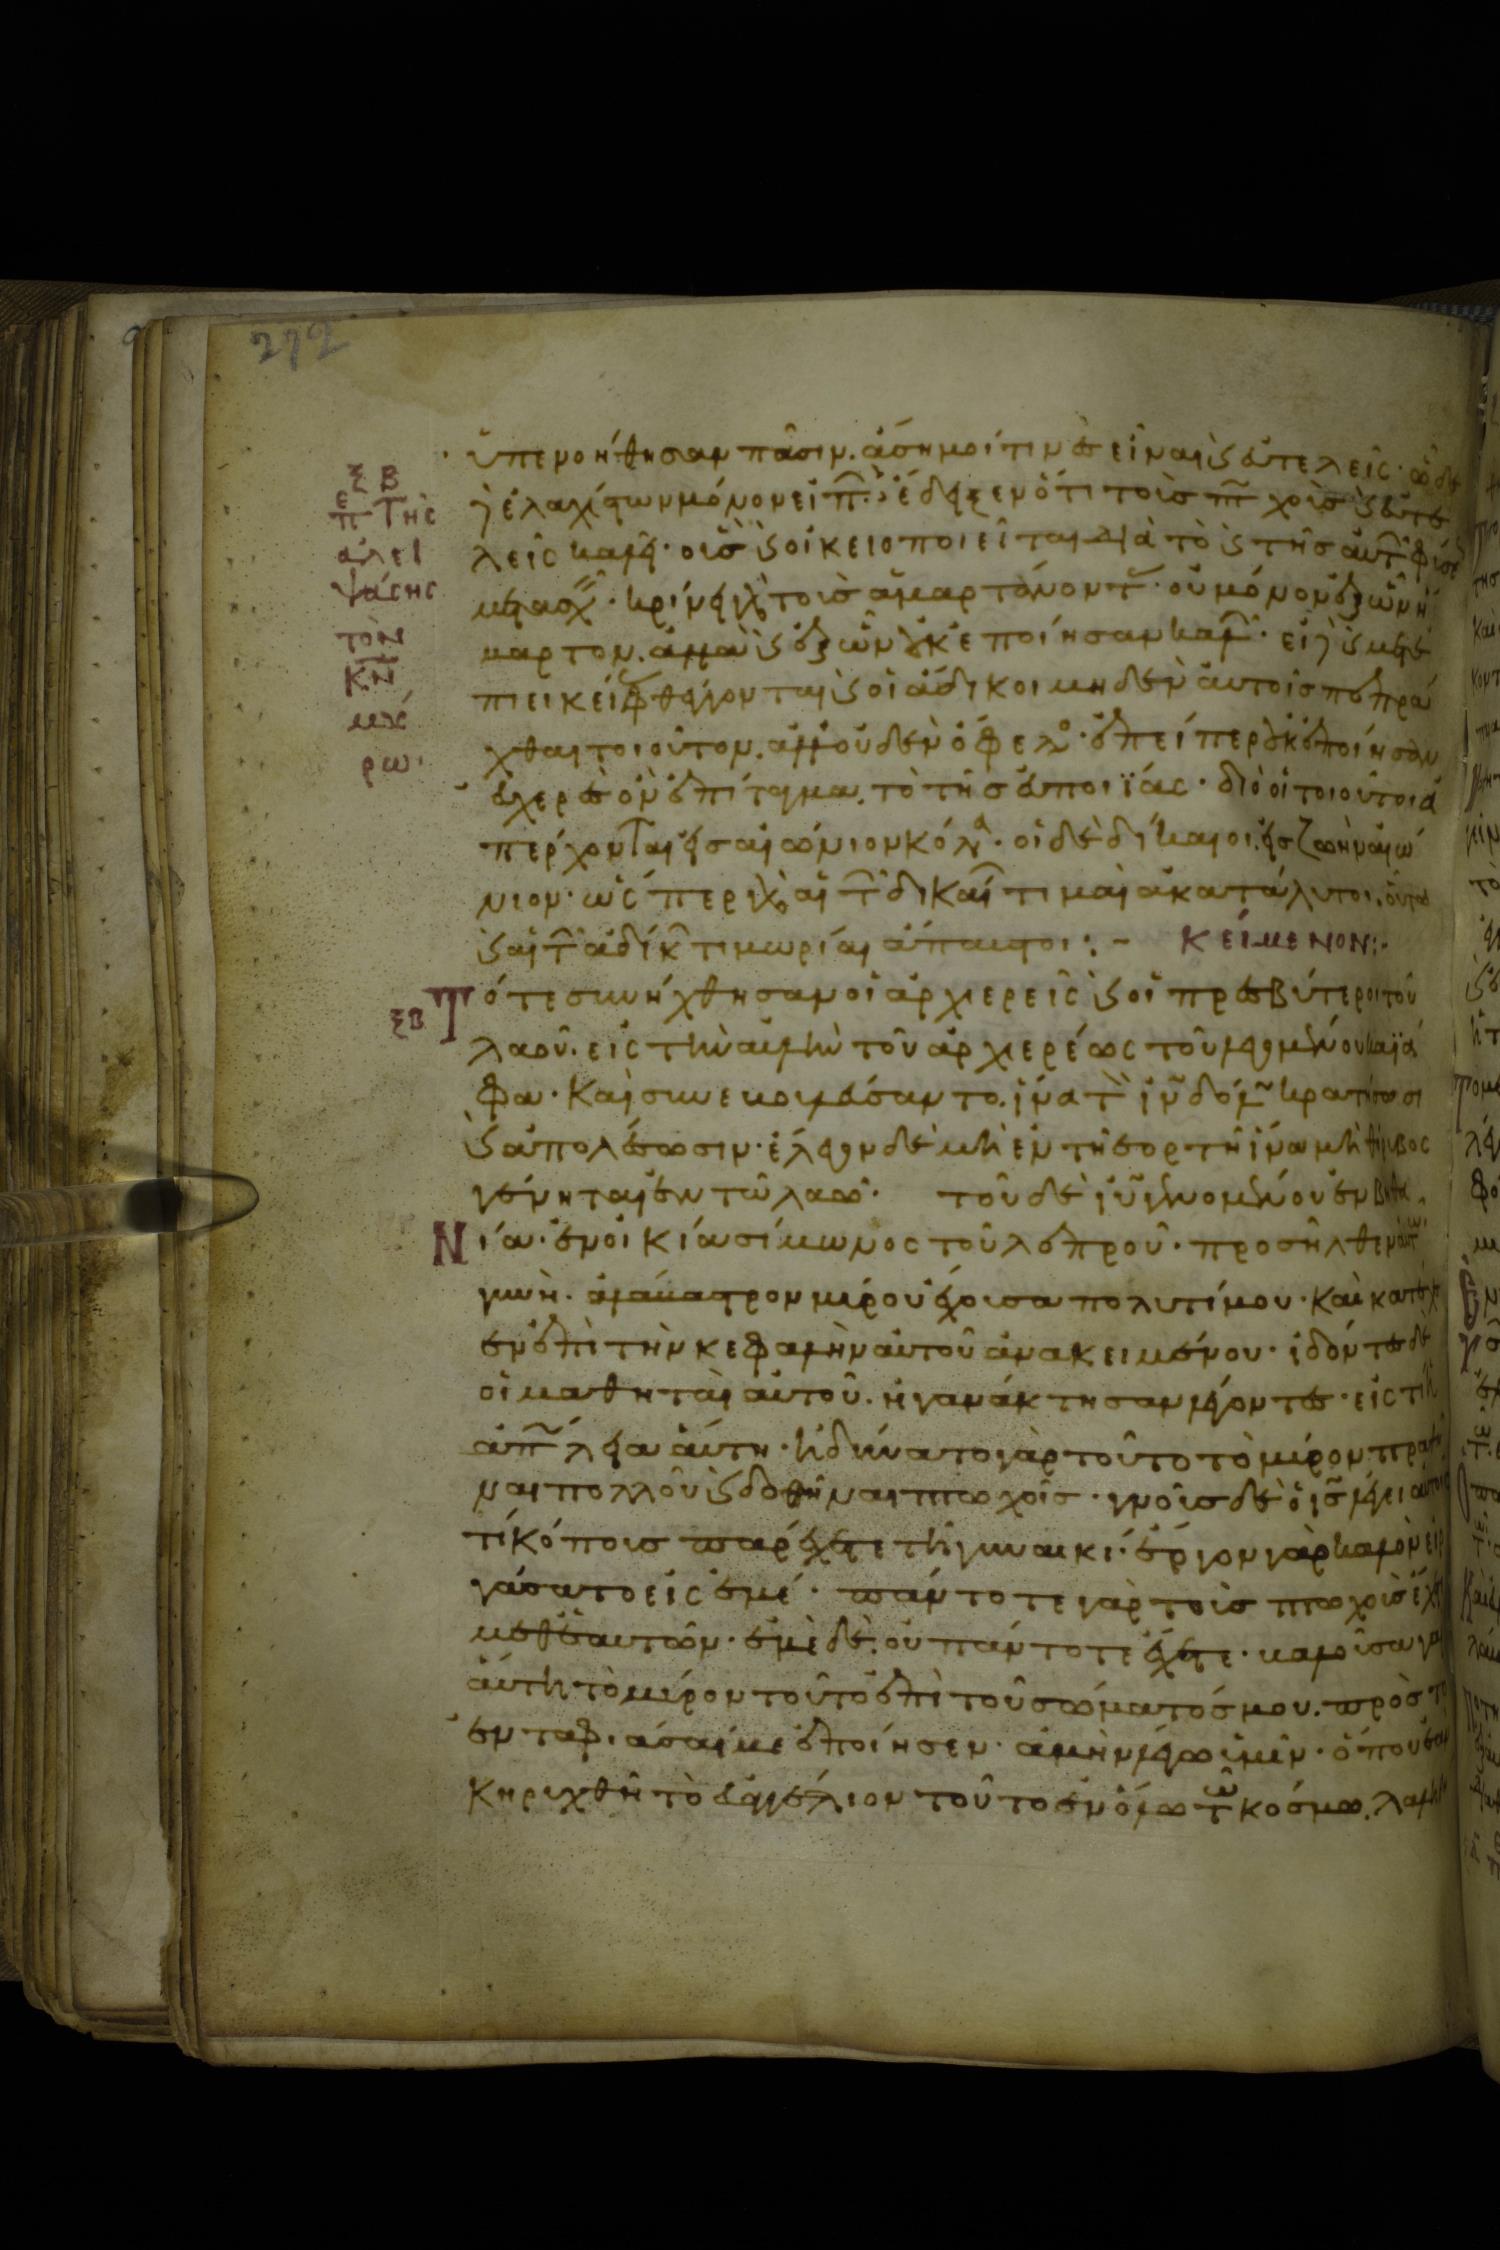 272
ξβ
πε Της
αλει
ψάσης
τὸν
κ̅ν̅
μύ
ρω·
ὑπενοήθησαν πᾶσιν. ἄσημοί τινες εἶναι ϗ εὐτελεῖς·
ἐλαχίστων μόνον ἔδειξεν ὅτι τοῖς πτωχοῖς ϗ εὐτε
λεῖς οἷς ϗ οἰκειοποιεῖται διὰ τὸ ϗ τῆς αὐτ φύσε
μετασχ. κρίνει τοῖς ἁμαρτάνοντ. οὐ μόνον ἐξ ὧν ἥ
μαρτον. ἀλλὰ ϗ ἐξ ὧν οὐκ ἐποίησαν καλ.
πιεικεί φθέγγονται ϗ οἱ ἄδικοι μηδὲν αὐτοῖς πεπρᾶ
χθαι τοιοῦτον. ἀλλ' οὐδὲν ὄφελος. ἐπείπερ οὐκ ἐποίησαν
εὐχερὲς ὂν ἐπίταγμα. τὸ τῆς εὐποιΐας. διὸ οἱ τοιοῦτοι ἀ
πέρχονται εἰς αἰώνιον κόλα. οἱ δὲ δίκαιοι. εἰς ζωὴν αἰώ
νιον. ὥσπερ αἱ τ δικαί τιμαὶ ἀκατάλυτοι. οὕτω
ϗ αἱ τ ἀδίκ τιμωρίαι ἄπαυστοι :– ΚΕΊΜΕΝΟΝ:–
ξβ Τότε συνήχθησαν οἱ ἀρχιερεῖς ϗ οἱ πρεσβύτεροι τοῦ
λαοῦ. εἰς τὴν αὐλὴν τοῦ ἀρχιερέως τοῦ λεγομένου καϊά
φα. Καὶ συνεβουλεύσαντο. ἵνα τ ι̅ν̅ δόλ κρατήσωσι
ϗ ἀπολέσωσιν. ἔλεγον δὲ μὴ ἐν τῇ ἑορτῇ ἵνα μὴ θόρυβος
γένηται ἐν τῷ λαῷ. τοῦ δὲ ι̅υ̅ γενομένου ἐν βηθα
Νία. ἐν οἰκία σίμωνος τοῦ λεπροῦ. προσῆλθεν αὐτῶ
γυνὴ. ἀλάβαστρον μύρου ἔχουσα πολυτίμου. Καὶ κατέχε
εν ἐπὶ τὴν κεφαλὴν αὐτοῦ ἀνακειμένου. ἰδόντες δὲ
οἱ μαθηταὶ αὐτοῦ. ἠγανάκτησαν λέγοντες. εἰς τί ἡ
ἀπώλεια αὕτη. ἠδύνατο γὰρ τοῦτο τὸ μύρον πραθῆ
ναι πολλοῦ ϗ δοθῆναι πτωχοῖς. γνοὺς δὲ ὁ ι̅ς̅ λέγει αὐτοῖς
τί κόπους παρέχετε τῇ γυναικί. ἔργον γὰρ καλὸν εἰρ
γάσατο εἰς ἐμέ. πάντοτε γὰρ τοὺς πτωχοὺς ἔχετε
μεθ' ἑαυτῶν. ἐμὲ δὲ. οὐ πάντοτε ἔχετε. βαλοῦσα γὰρ
αὕτη τὸ μύρον τοῦτο ἐπὶ τοῦ σώματός μου. πρὸς τὸ
ἐνταφιάσαι με ἐποίησεν. ἀμὴν λέγω ὑμῖν. ὅπου ἐὰν
Κηρυχθῇ τὸ εὐαγγέλιον τοῦτο ἐν ὅλω τῶ κόσμω. λαλη